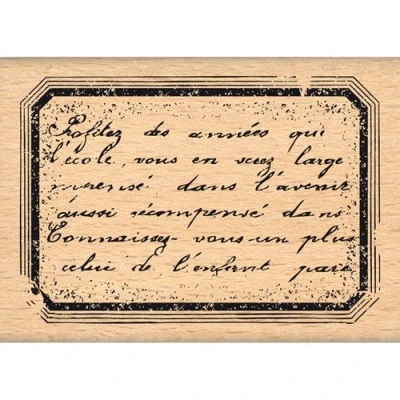 Profitez des années que
l'école, vous en serez large
mpensé dans l'avenir
aussi récompensé dans
Connaissez-vous un plus
celui de l'enfant pare